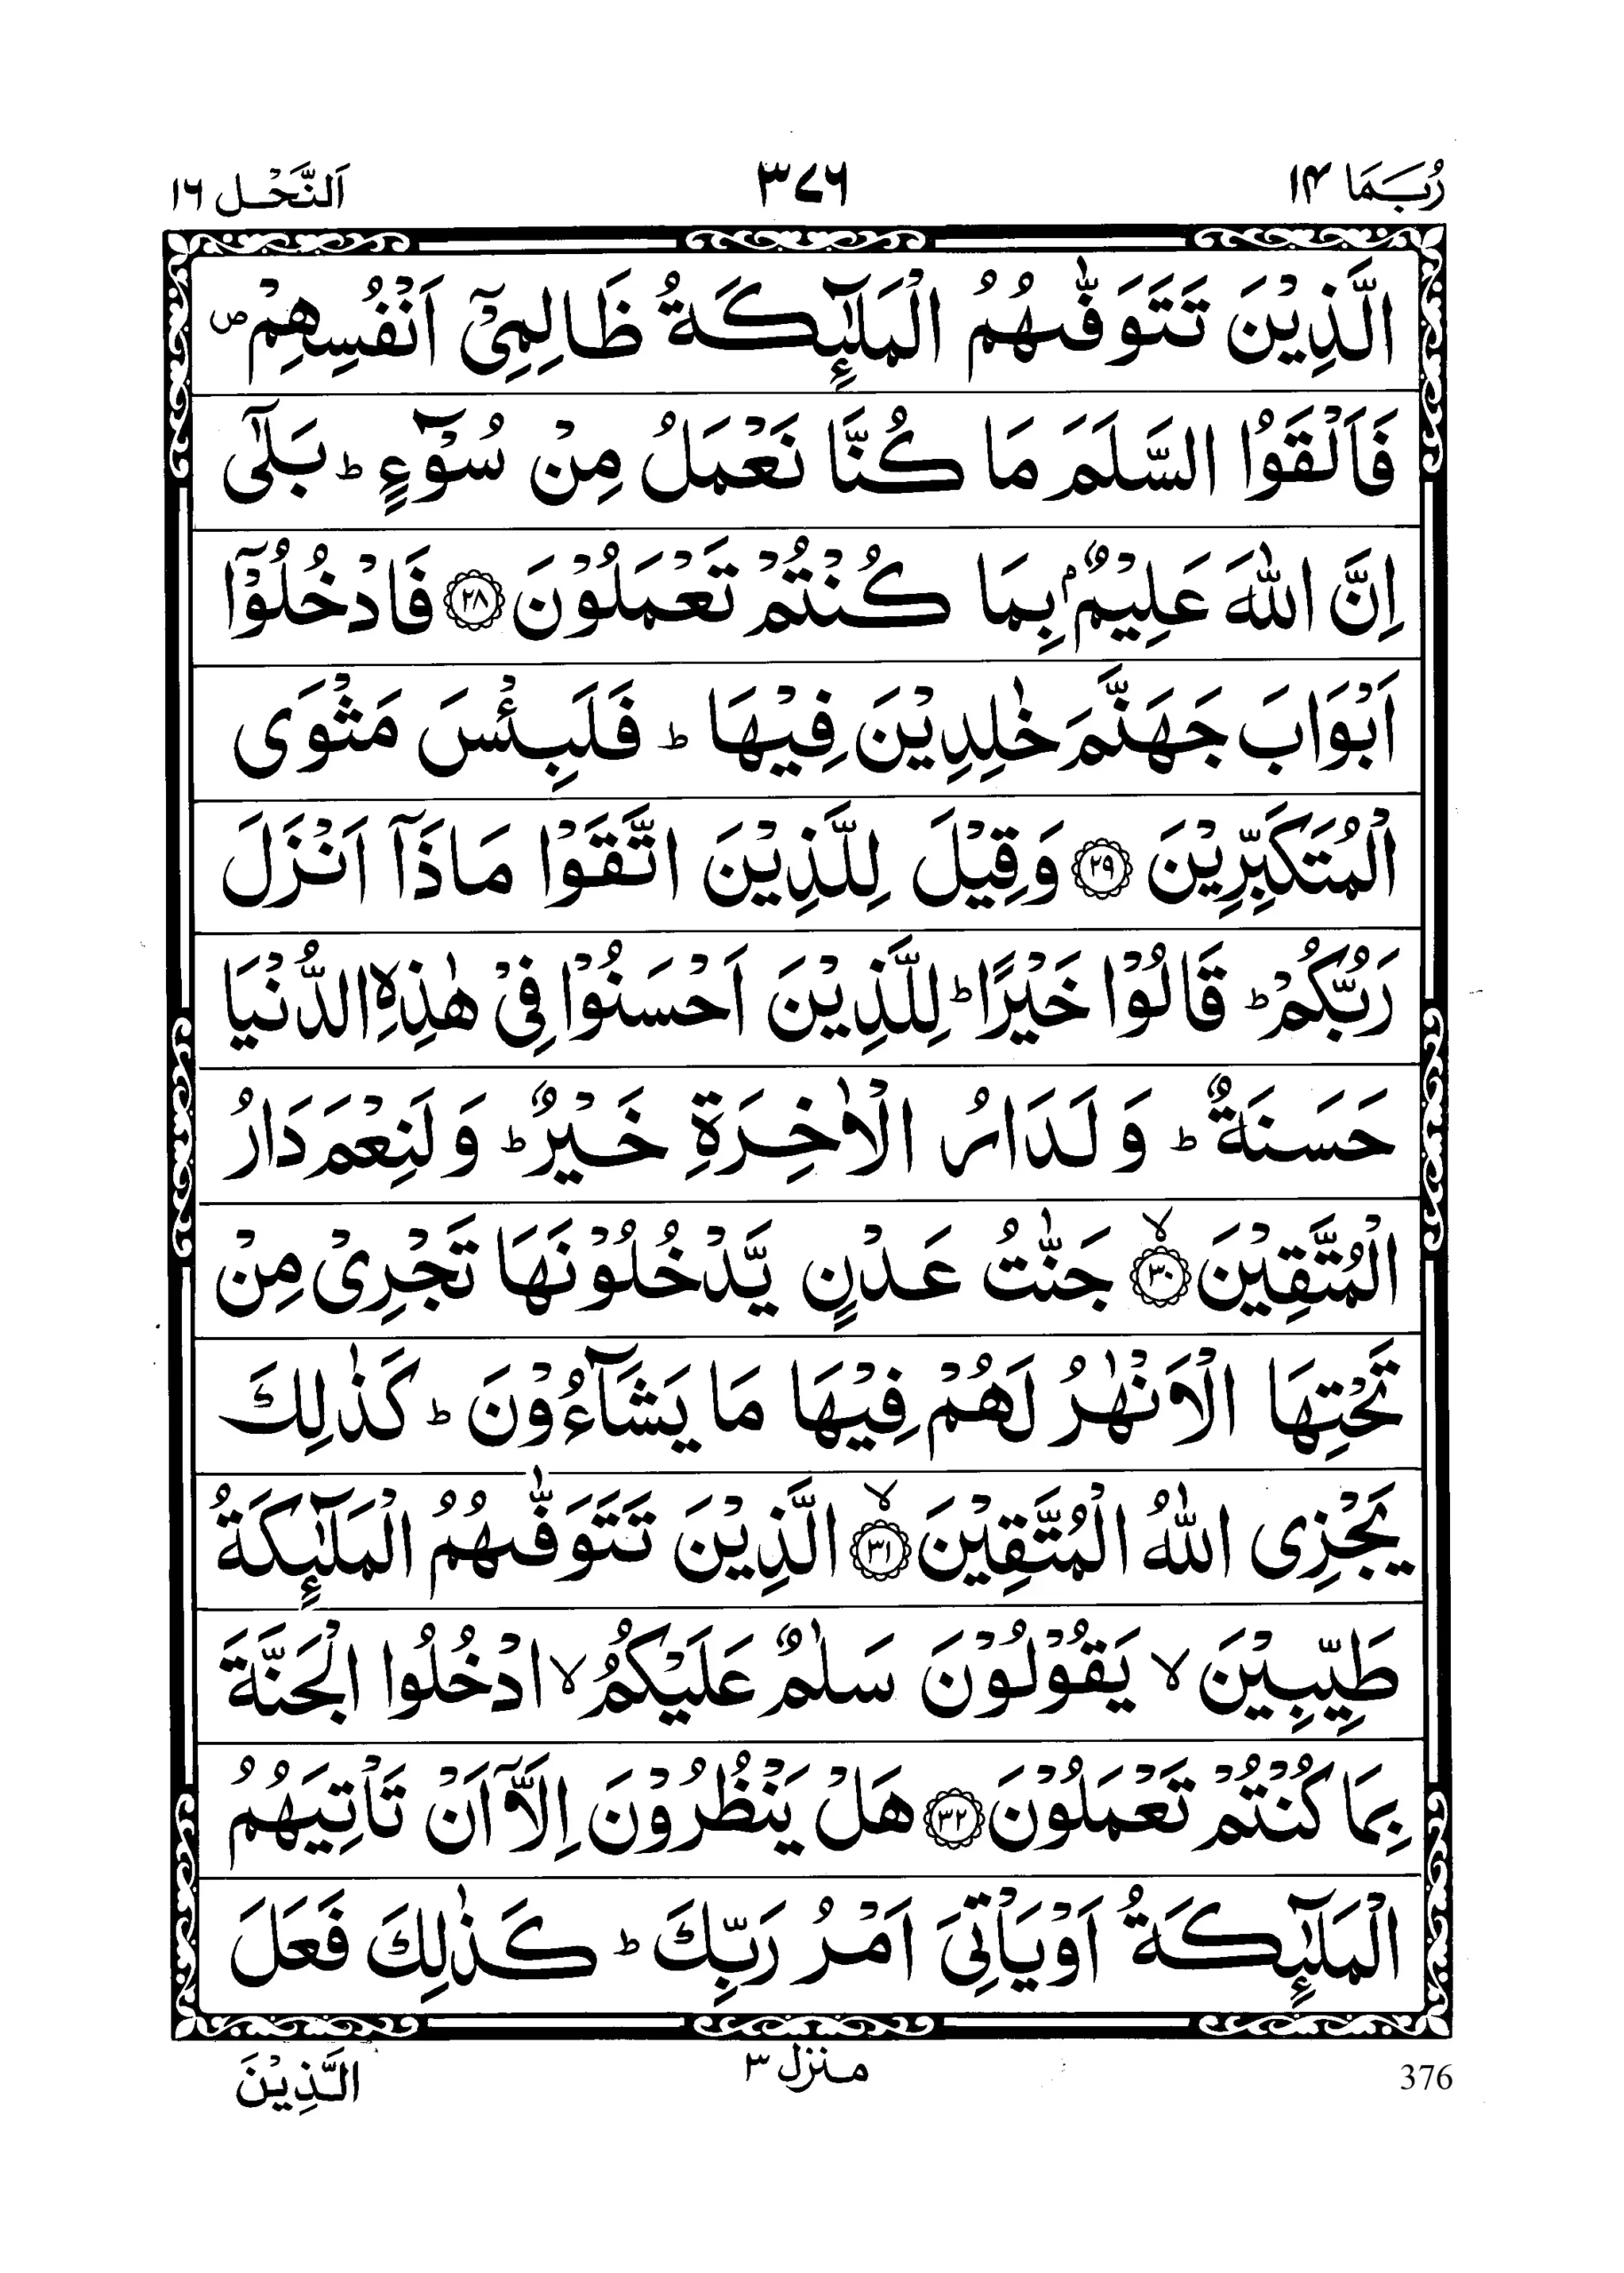 رُبَمَا ١٤
٣٧٦
اَلنَّحْل ١٦
الَّذِيْنَ تَتَوَفّٰىهُمُ الْمَلٰٓئِكَةُ ظَالِمِيْٓ اَنْفُسِهِمْ ۪
فَاَلْقَوُا السَّلَمَ مَا كُنَّا نَعْمَلُ مِنْ سُوْٓءٍ ؕ بَلٰٓى
اِنَّ اللّٰهَ عَلِيْمٌۢ بِمَا كُنْتُمْ تَعْمَلُوْنَ ﴿٢٨﴾ فَادْخُلُوْٓا
اَبْوَابَ جَهَنَّمَ خٰلِدِيْنَ فِيْهَا ؕ فَلَبِئْسَ مَثْوَى
الْمُتَكَبِّرِيْنَ ﴿٢٩﴾ وَقِيْلَ لِلَّذِيْنَ اتَّقَوْا مَاذَاۤ اَنْزَلَ
رَبُّكُمْ ؕ قَالُوْا خَيْرًا ؕ لِلَّذِيْنَ اَحْسَنُوْا فِيْ هٰذِهِ الدُّنْيَا
حَسَنَةٌ ؕ وَلَدَارُ الْاٰخِرَةِ خَيْرٌ ؕ وَلَنِعْمَ دَارُ
الْمُتَّقِيْنَ ﴿٣٠﴾ۙ جَنّٰتُ عَدْنٍ يَّدْخُلُوْنَهَا تَجْرِيْ مِنْ
تَحْتِهَا الْاَنْهٰرُ لَهُمْ فِيْهَا مَا يَشَآءُوْنَ ؕ كَذٰلِكَ
يَجْزِى اللّٰهُ الْمُتَّقِيْنَ ﴿٣١﴾ۙ الَّذِيْنَ تَتَوَفّٰىهُمُ الْمَلٰٓئِكَةُ
طَيِّبِيْنَ ۙ يَقُوْلُوْنَ سَلٰمٌ عَلَيْكُمُ ۙ ادْخُلُوا الْجَنَّةَ
بِمَا كُنْتُمْ تَعْمَلُوْنَ ﴿٣٢﴾ هَلْ يَنْظُرُوْنَ اِلَّاۤ اَنْ تَاْتِيَهُمُ
الْمَلٰٓئِكَةُ اَوْ يَاْتِيَ اَمْرُ رَبِّكَ ؕ كَذٰلِكَ فَعَلَ
376
منزل ٣
الَّذِيْنَ